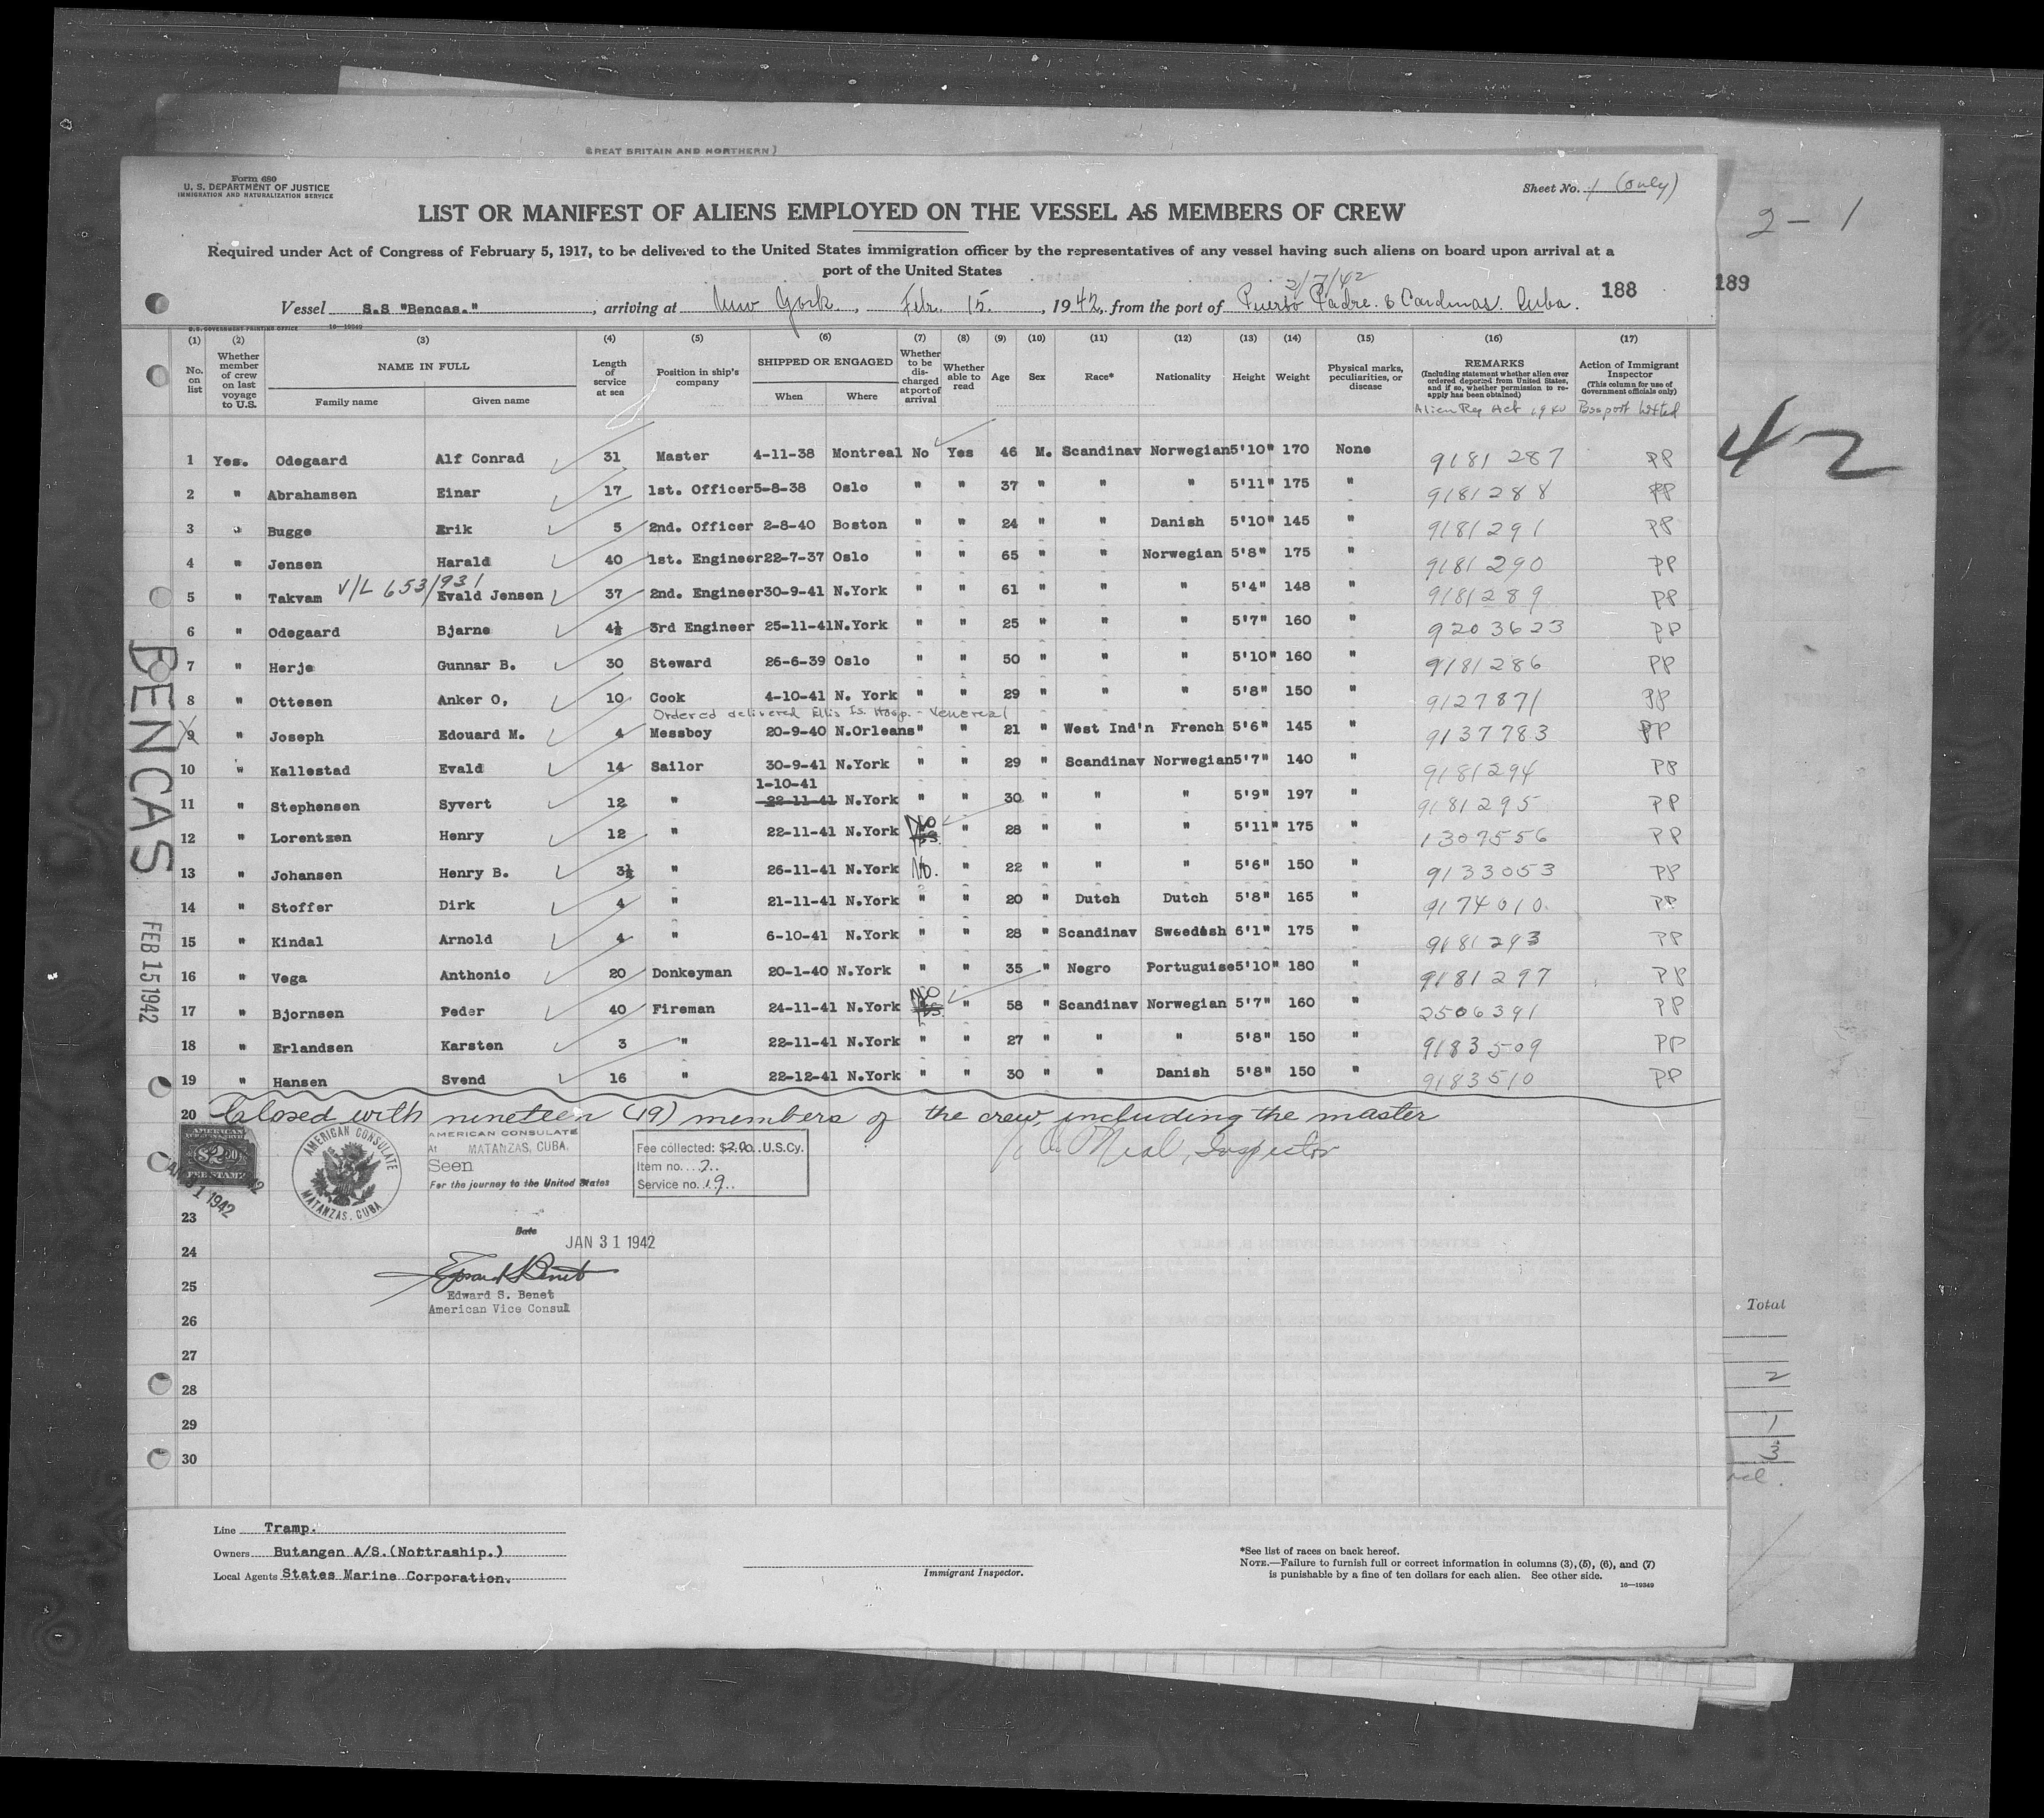 GREAT BRITAIN AND NORTHERN)
Form 680
U. S. DEPARTMENT OF JUSTICE
IMMIGRATION AND NATURALIZATION SERVICE
Sheet No. 1 (only)
2 - 1
LIST OR MANIFEST OF ALIENS EMPLOYED ON THE VESSEL AS MEMBERS OF CREW
Required under Act of Congress of February 5, 1917, to be delivered to the United States immigration officer by the representatives of any vessel having such aliens on board upon arrival at a
port of the United States
2/7/42
188
189
Vessel S.S "Bencas.", arriving at New York., Febr. 15., 1942, from the port of Puerto Padre. & Cardenas. Cuba.
U.S. GOVERNMENT PRINTING OFFICE 16—19349
(1) (2) (3) (4) (5) (6) (7) (8) (9) (10) (11) (12) (13) (14) (15) (16) (17)
No. on list
Whether member of crew on last voyage to U.S.
NAME IN FULL
Family name
Given name
Length of service at sea
Position in ship's company
SHIPPED OR ENGAGED
When
Where
Whether to be discharged at port of arrival
Whether able to read
Age
Sex
Race*
Nationality
Height
Weight
Physical marks, peculiarities, or disease
REMARKS
(Including statement whether alien ever ordered deported from United States, and if so, whether permission to re-apply has been obtained)
Alien Reg Act 1940
Action of Immigrant Inspector
(This column for use of Government officials only)
Passport Lifted
42
1 Yes. Odegaard Alf Conrad 31 Master 4-11-38 Montreal No Yes 46 M. Scandinav Norwegian 5'10" 170 None 9181287 PP
2 " Abrahamsen Einar 17 1st. Officer 5-8-38 Oslo " " 37 " " " 5'11" 175 " 9181288 PP
3 " Bugge Erik 5 2nd. Officer 2-8-40 Boston " " 24 " " Danish 5'10" 145 " 9181291 PP
4 " Jensen Harald 40 1st. Engineer 22-7-37 Oslo " " 65 " " Norwegian 5'8" 175 " 9181290 PP
V/L 653/931
5 " Takvam Evald Jensen 37 2nd. Engineer 30-9-41 N.York " " 61 " " " 5'4" 148 " 9181289 PP
6 " Odegaard Bjarne 4½ 3rd Engineer 25-11-41 N.York " " 25 " " " 5'7" 160 " 9203623 PP
7 " Herje Gunnar B. 30 Steward 26-6-39 Oslo " " 50 " " " 5'10" 160 " 9181286 PP
8 " Ottesen Anker O, 10 Cook 4-10-41 N. York " " 29 " " " 5'8" 150 " 9127871 PP
Ordered delivered Ellis Is. Hosp. - Venereal
9 " Joseph Edouard M. 4 Messboy 20-9-40 N.Orleans " " 21 " West Ind'n French 5'6" 145 " 9137783 PP
10 " Kallestad Evald 14 Sailor 30-9-41 N.York " " 29 " Scandinav Norwegian 5'7" 140 " 9181294 PP
1-10-41
11 " Stephensen Syvert 12 " 22-11-41 N.York " " 30 " " " 5'9" 197 " 9181295 PP
12 " Lorentzen Henry 12 " 22-11-41 N.York No Yes. " 28 " " " 5'11" 175 " 1307556 PP
13 " Johansen Henry B. 3½ " 26-11-41 N.York No. " 22 " " " 5'6" 150 " 9133053 PP
14 " Stoffer Dirk 4 " 21-11-41 N.York " " 20 " Dutch Dutch 5'8" 165 " 9174010 PP
15 " Kindal Arnold 4 " 6-10-41 N.York " " 28 " Scandinav Sweedish 6'1" 175 " 9181293 PP
16 " Vega Anthonio 20 Donkeyman 20-1-40 N.York " " 35 " Negro Portuguise 5'10" 180 " 9181297 PP
17 " Bjornsen Peder 40 Fireman 24-11-41 N.York No Yes. " 58 " Scandinav Norwegian 5'7" 160 " 2506391 PP
18 " Erlandsen Karsten 3 " 22-11-41 N.York " " 27 " " " 5'8" 150 " 9183509 PP
19 " Hansen Svend 16 " 22-12-41 N.York " " 30 " " Danish 5'8" 150 " 9183510 PP
BENCAS
FEB 15 1942
20 Closed with nineteen (19) members of the crew, including the master
O'Neal, Inspector
AMERICAN
$2.00
FEE STAMP
JAN 31 1942
AMERICAN CONSULATE
MATANZAS, CUBA
AMERICAN CONSULATE
At MATANZAS, CUBA.
Seen
For the journey to the United States
Fee collected: $2.00. U.S.Cy.
Item no. 7.
Service no. 19.
Date
JAN 31 1942
Edward S. Benet
Edward S. Benet
American Vice Consul
23
24
25
26
27
28
29
30
Total
2
1
3
Line Tramp.
Owners Butangen A/S.(Nortraship.)
Local Agents States Marine Corporation.
Immigrant Inspector.
*See list of races on back hereof.
NOTE.—Failure to furnish full or correct information in columns (3), (5), (6), and (7)
is punishable by a fine of ten dollars for each alien. See other side.
16—19349